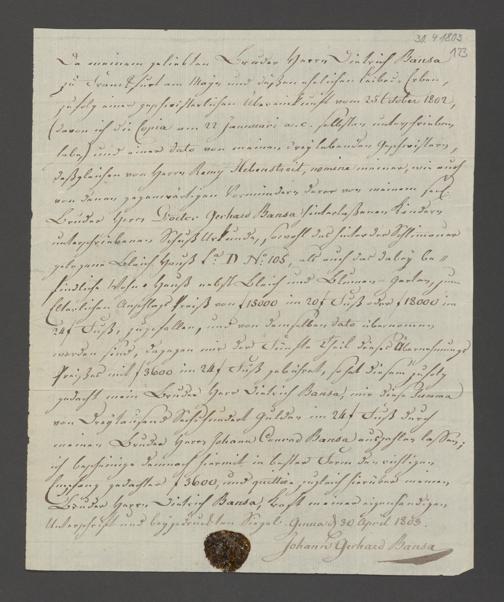 30. 4 1803
123
Da meinem geliebten Bruder Herrn Dietrich Bansa
zu Franckfurt am Mayn und deßen ehelichen Leibes Erben,
zufolg einer geschwisterlichen Übereinkunft vom 25 October 1802,
(davon ich die Copia am 22 Januarii a. c. selbsten unterschrieben
habe) und einer dato von meinen drey lebenden Geschwistern,
deßgleichen von Herrn Remy nomine meiner, wie auch
von denen gegenwärtigen Vormündern derer von meinem seel.
Bruder Herrn Doctor Gerhard Bansa hinterlaßenen Kindern
unterschriebenen Schluß Urkunde, sowohl das hinter der Schlimmauer
gelegene Bleich Hauß Lit. D No. 105, als auch das dabey be=
findliche Wohn-Hauß nebst Bleich und Blumen-Garten, zum
Anschlags Preiß von f 15000 im 20 f Fuß oder f 18000 im
24 f Fuß, zugefallen, und von demselben dato übernommen
worden sind, dagegen mir der Fünfte Theil dieses Übernehmungs
Preißes mit f 3600 im 24 f Fuß gebühret, so hat diesem zufolg
gedacht mein Bruder Herr Dietrich Bansa, mir diese Summa
von Dreytausend Sechshundert Gulden im 24 f Fuß durch
meinen Bruder Herrn Johann Conrad Bansa auszahlen lassen;
ich bescheinige demnach hiermit in bester Form den richtigen
Empfang gedachter f 3600, und quittire zugleich hierüber meinen
Bruder Herrn Dietrich Bansa, kraft meiner eigenhändigen
Unterschrift und beygedruckten Siegel. 30 April 1803.
Johann Gerhard Bansa